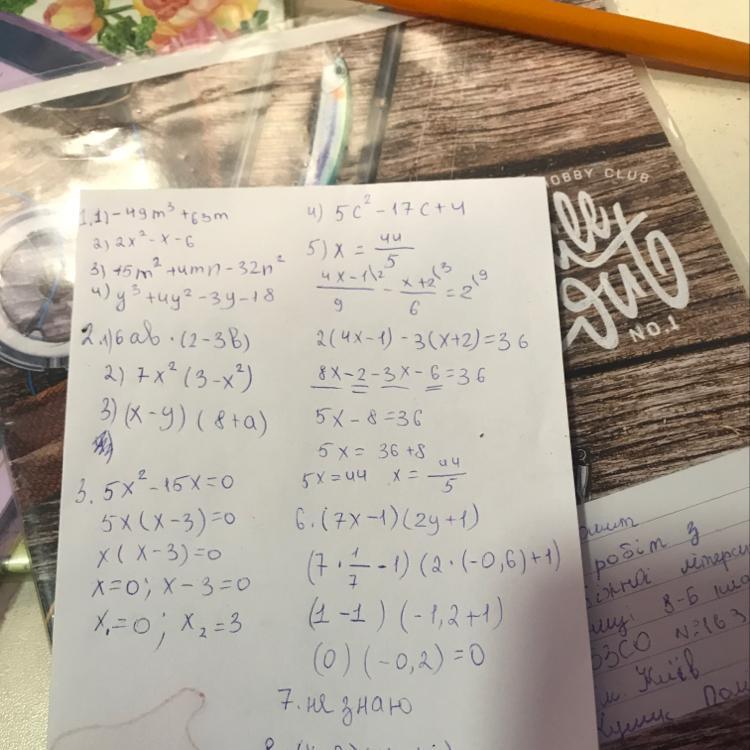 1.1) -49m³ + 63m
2) 2x² - x - 6
3) +5m² + 4mn - 32n²
4) y³ + 4y² - 3y - 18
2.1) 6ab · (2 - 3b)
2) 7x² (3 - x²)
3) (x - y) (8 + a)
3. 5x² - 15x = 0
5x(x - 3) = 0
x(x - 3) = 0
x = 0; x - 3 = 0
x₁ = 0; x₂ = 3
4) 5c² - 17c + 4
5) x = 44/5
(4x - 1)/9 \² - (x + 2)/6 \³ = 2 \⁹
2(4x - 1) - 3(x + 2) = 36
8x - 2 - 3x - 6 = 36
5x - 8 = 36
5x = 36 + 8
5x = 44 x = 44/5
6. (7x - 1)(2y + 1)
(7 · 1/7 - 1)(2 · (-0,6) + 1)
(1 - 1) (-1,2 + 1)
(0) (-0,2) = 0
7. не знаю
HOBBY CLUB
NO.1
робіт з
8-Б
№163
м. Київ